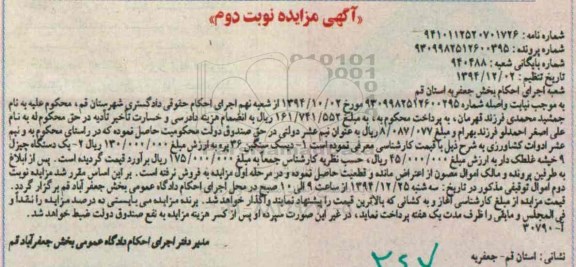 «آگهی مزایده نوبت دوم»
شماره نامه: ۹۴۱۰۱۱۲۵۲۰۷۰۱۷۲۶
شماره پرونده: ۹۳۰۹۹۸۲۵۱۲۶۰۰۳۹۵
شماره بایگانی شعبه: ۹۴۰۴۸۸
تاریخ تنظیم: ۱۳۹۴/۱۲/۰۲
شعبه اجرای احکام بخش جعفریه استان قم
به موجب نیابت واصله شماره ۹۳۰۹۹۸۲۵۱۲۶۰۰۲۹۵ مورخ ۱۳۹۴/۱۰/۰۲ از شعبه نهم اجرای احکام حقوقی دادگستری شهرستان قم، محکوم علیه به نام
جمشید محمدی فرزند قهرمان، به پرداخت محکوم به به مبلغ ۱۶۱/۷۴۱/۵۵۲ ریال به انضمام هزینه دادرسی و خسارت تأخیر تأدیه در حق محکوم له به نام
علی اصغر احمدلو فرزند بهرام و مبلغ ۸/۰۸۷/۰۷۷ ریال به عنوان نیم عشر دولتی در حق صندوق دولت محکومیت حاصل نموده که در راستای محکوم به و نیم
عشر ادوات کشاورزی به شرح ذیل با قیمت کارشناسی معرفی نموده است ۱- دیسک سنگین ۳۶ پره به ارزش مبلغ ۱۳۰/۰۰۰/۰۰۰ ریال ۲- یک دستگاه چیزل
۹ خیشه غلطک دار به ارزش مبلغ ۴۵/۰۰۰/۰۰۰ ریال، حسب نظریه کارشناس جمعاً به مبلغ ۱۷۵/۰۰۰/۰۰۰ ریال برآورد قیمت گردیده است. پس از ابلاغ
به طرفین پرونده و مالک اموال مصون از اعتراض مانده و قطعیت حاصل نموده و در مرحله اول مزایده به فروش نرفته است. بر این اساس مقرر شد مزایده نوبت
دوم اموال توقیفی مذکور در تاریخ: سه شنبه ۱۳۹۴/۱۲/۲۵ از ساعت ۹ الی ۱۰ صبح در محل اجرای احکام دادگاه عمومی بخش جعفر آباد قم برگزار گردد.
قیمت مزایده از مبلغ کارشناسی آغاز و به کشانی که بالاترین قیمت را پیشنهاد نمایند واگذار خواهد شد. برنده مزایده می بایستی ده درصد مزایده را نقداً و
فی المجلس و مابقی را ظرف مدت یک هفته پرداخت نماید، در غیر این صورت سپرده او پس از کسر هزینه مزایده به نفع صندوق دولت ضبط خواهد شد.
آ-۳۰۷۹۰
مدیر دفتر اجرای احکام دادگاه عمومی بخش جعفرآباد قم
نشانی: استان قم- جعفریه